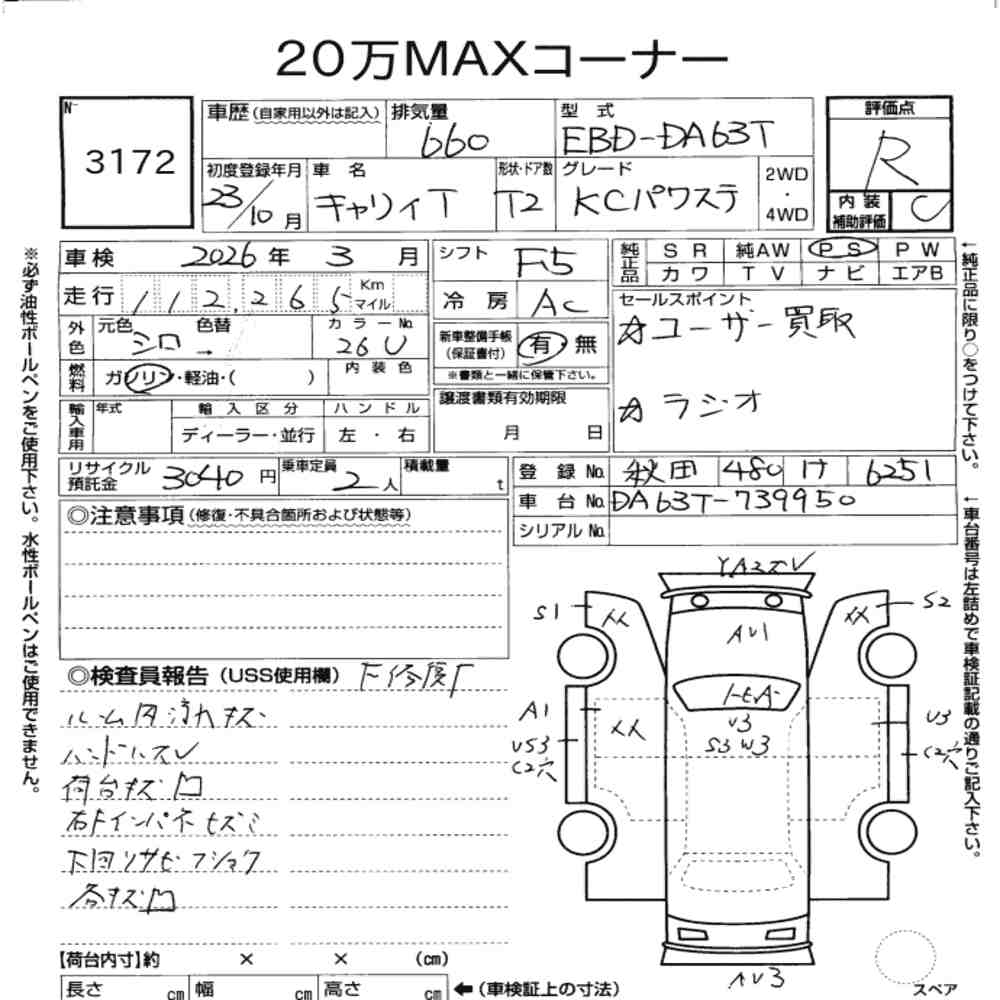 20万MAXコーナー
N-
3172
車歴 (自家用以外は記入)
排気量
660
型 式
EBD-DA63T
評価点
R
初度登録年月
23/10 月
車 名
キャリィT
形状・ドア数
T2
グレード
KCパワステ
2WD
・
4WD
内 装
補助評価
C
車検 2026 年 3 月
シフト F5
純正品
SR 純AW PS PW
カワ TV ナビ エアB
走行 112,265 Km マイル
冷房 AC
セールスポイント
☆ユーザー買取
☆ラジオ
外色 元色 シロ 色替 →
カラーNo. 26U
新車整備手帳
(保証書付)
有・無
※書類と一緒に保管下さい。
燃料 ガソリン・軽油・( )
内装色
輸入車用 年式
輸入区分
ハンドル
ディーラー・並行
左 ・ 右
譲渡書類有効期限
月 日
リサイクル
預託金
3040 円
乗車定員
2 人
積載量
t
登録 No. 秋田 480 け 6251
車台 No. DA63T-739950
シリアル No.
◎注意事項 (修復・不具合箇所および状態等)
◎検査員報告 (USS使用欄) F修復F
ルーム内汚れキズ
ハンドルスレ
荷台キズ凹
下回りサビフショク
各キズ凹
S1
メメ
メメ
S2
AU1
A1
メメ
U3
S3 W3
U3
US3
C2穴
C2穴
AU3
スペア
【荷台内寸】約 × × (cm)
長さ cm 幅 cm 高さ cm
←(車検証上の寸法)
※必ず油性ボールペンをご使用下さい。水性ボールペンはご使用できません。
←純正品に限り○をつけて下さい。
←車台番号は左詰めで車検証記載の通りご記入下さい。